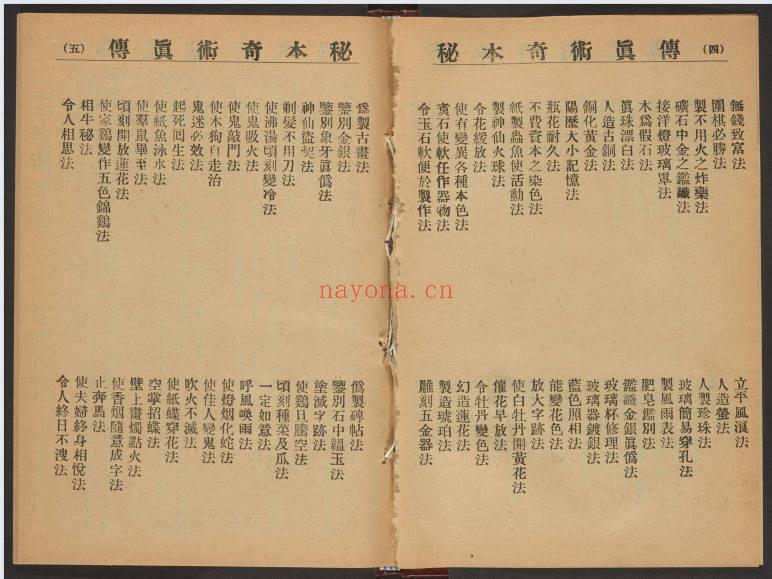 傳眞術奇本秘
（四）
無錢致富法
圍棋必勝法
製不用火之炸藥法
礦石中金之鑑識法
接洋燈玻璃罩法
木爲假石法
眞珠漂白法
人造古銅法
銅化黃金法
陽歷大小記憶法
瓶花耐久法
不費資本之染色法
紙製蟲魚使活動法
製神仙火球法
令花緩放法
使有變異各種本色法
寅石使軟任作器物法
令玉石軟便於製作法
立平風浪法
人造螢法
人製珍珠法
玻璃簡易穿孔法
製風雨表法
肥皂鑑別法
鑑識金銀眞僞法
玻璃杯修理法
玻璃器鍍銀法
藍色照相法
能變花色法
放大字跡法
使白牡丹開黃花法
催花早放法
令牡丹變色法
幻造蓮花法
製造琥珀法
雕刻五金器法
秘本奇術眞傳
（五）
僞製古畫法
鑒別金銀法
鑒別象牙眞僞法
神仙盜契法
剃髮不用刀法
使沸湯頃刻變冷法
使鬼吸火法
使鬼敲門法
使木狗自走治
鬼迷必效法
起死回生法
使紙魚泳水法
使羣鼠畢至法
頃刻開放蓮花法
使家鷄變作五色錦鷄法
相牛秘法
令人相思法
僞製碑帖法
鑒別石中韞玉法
塗滅字跡法
使鷄旦騰空法
頃刻種菜及瓜法
一定如意法
呼風喚雨法
使燈烟化蛇法
使佳人變鬼法
吹火不滅法
使紙蝶穿花法
空掌招蝶法
壁上畫燭點火法
使香烟隨意成字法
止奔馬法
使夫婦終身相悅法
令人終日不溲法
nayona.cn